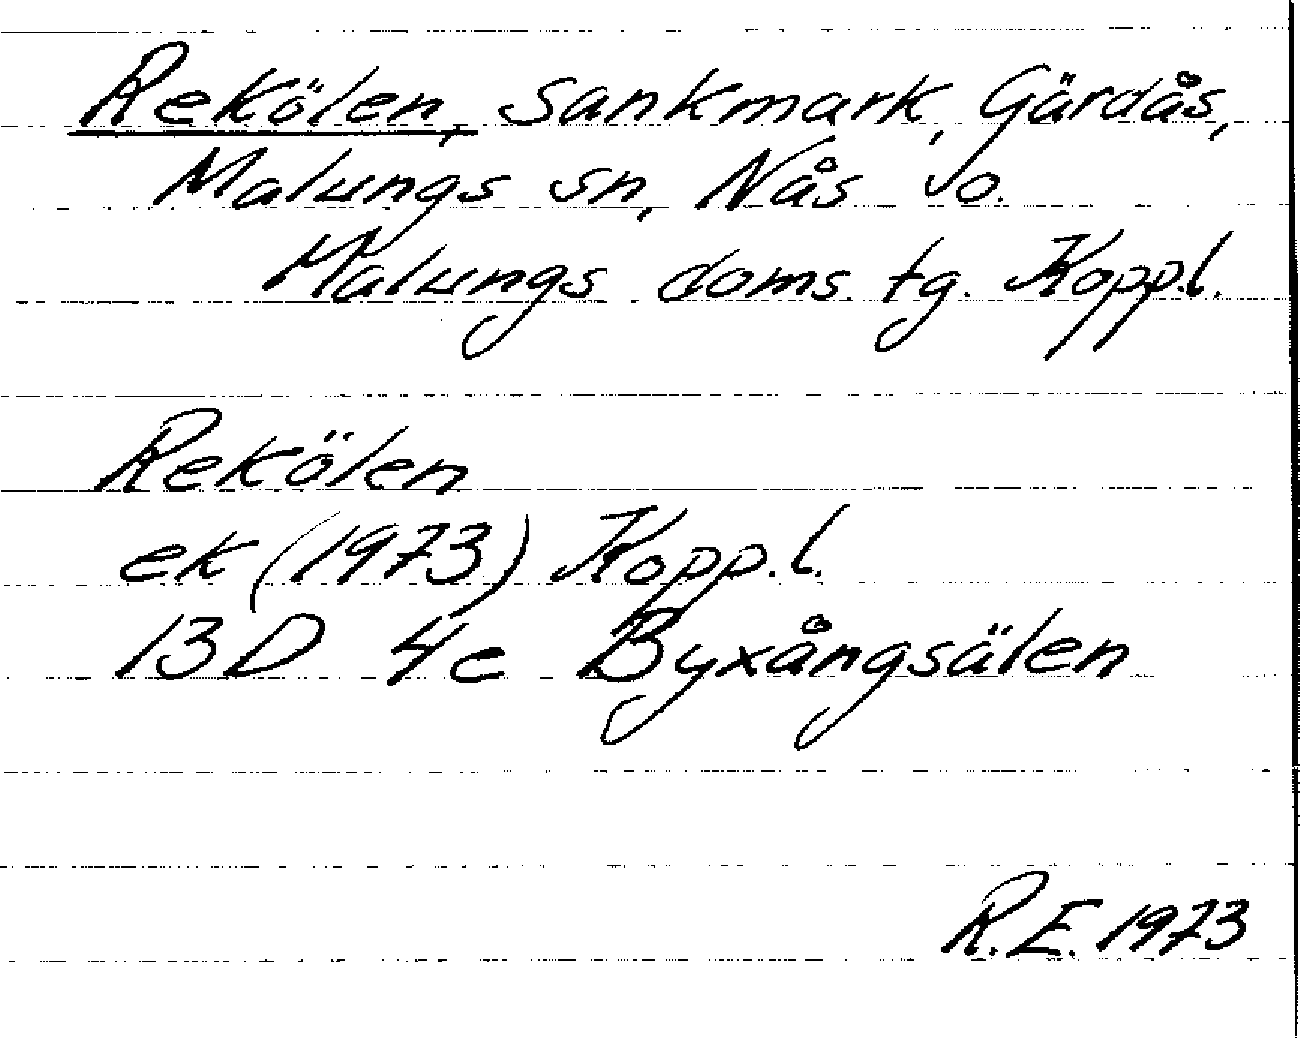 Rekölen, Sankmark, Gärdås,
Malungs sn, Nås vo.
Malungs doms. tg. Kopp.l.
Rekölen
ek (1973) Kopp.l.
13D 4e Byxångsälen
R.E. 1973